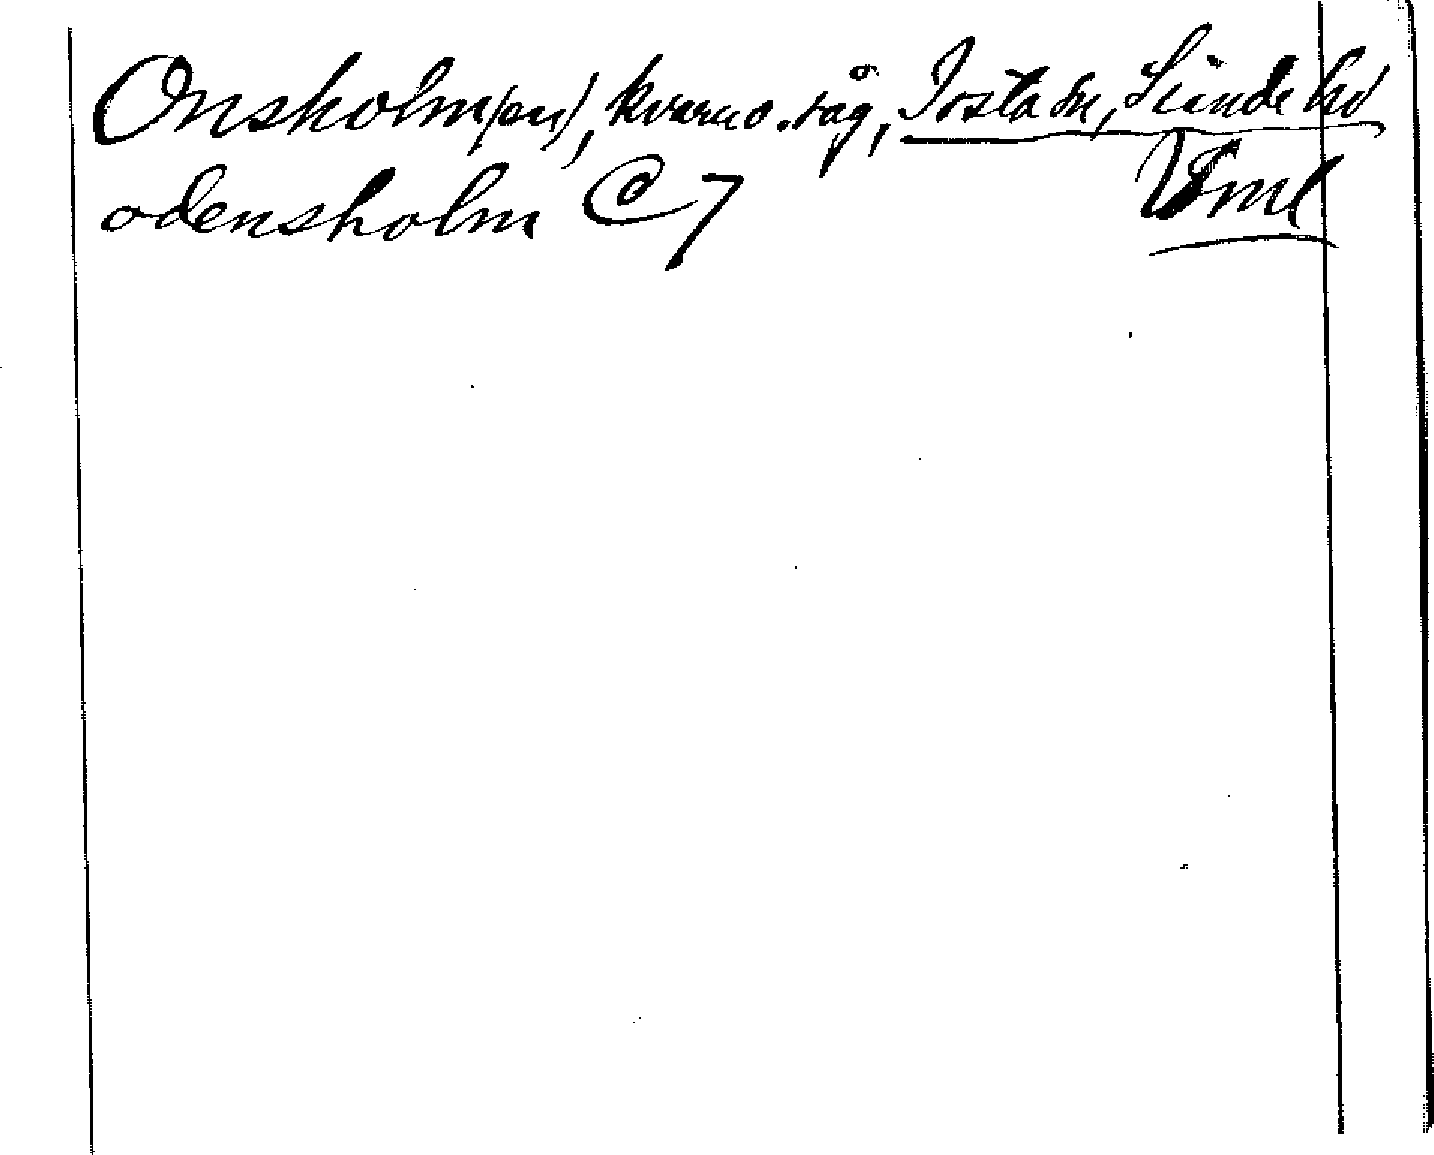 Onsholm(en), kvarn o. såg, Tösta sn, Sunde hd
odensholm C 7 Vsml